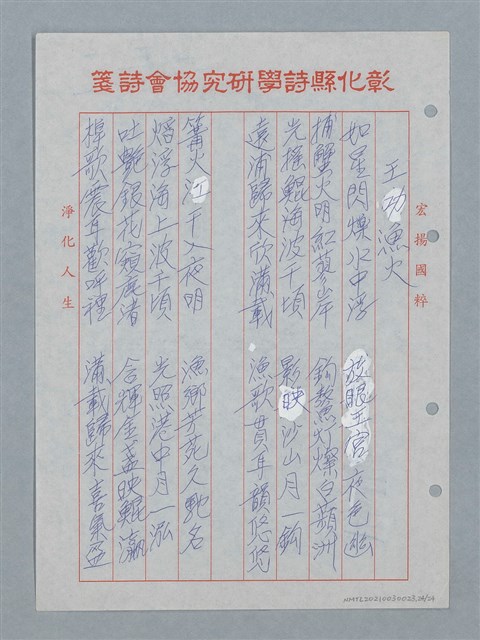 彰化縣詩學研究協會詩箋
宏揚國粹
王功漁火
如星閃爍水中浮 放眼王宮夜色幽
捕蟹火明紅蓼岸 釣鰲灯燦白蘋洲
光搖鯤海波千頃 影映沙山月一鈎
遠浦歸來欣滿載 漁歌貫耳韻悠悠
篝火江干入夜明 漁鄉芳苑久馳名
熠浮海上波千頃 光照港中月一泓
吐艷銀花窺鹿渚 含輝金盞映鯤瀛
棹歌震耳歡呼裡 滿載歸來喜氣盈
淨化人生
NMTL20210030023.24/24